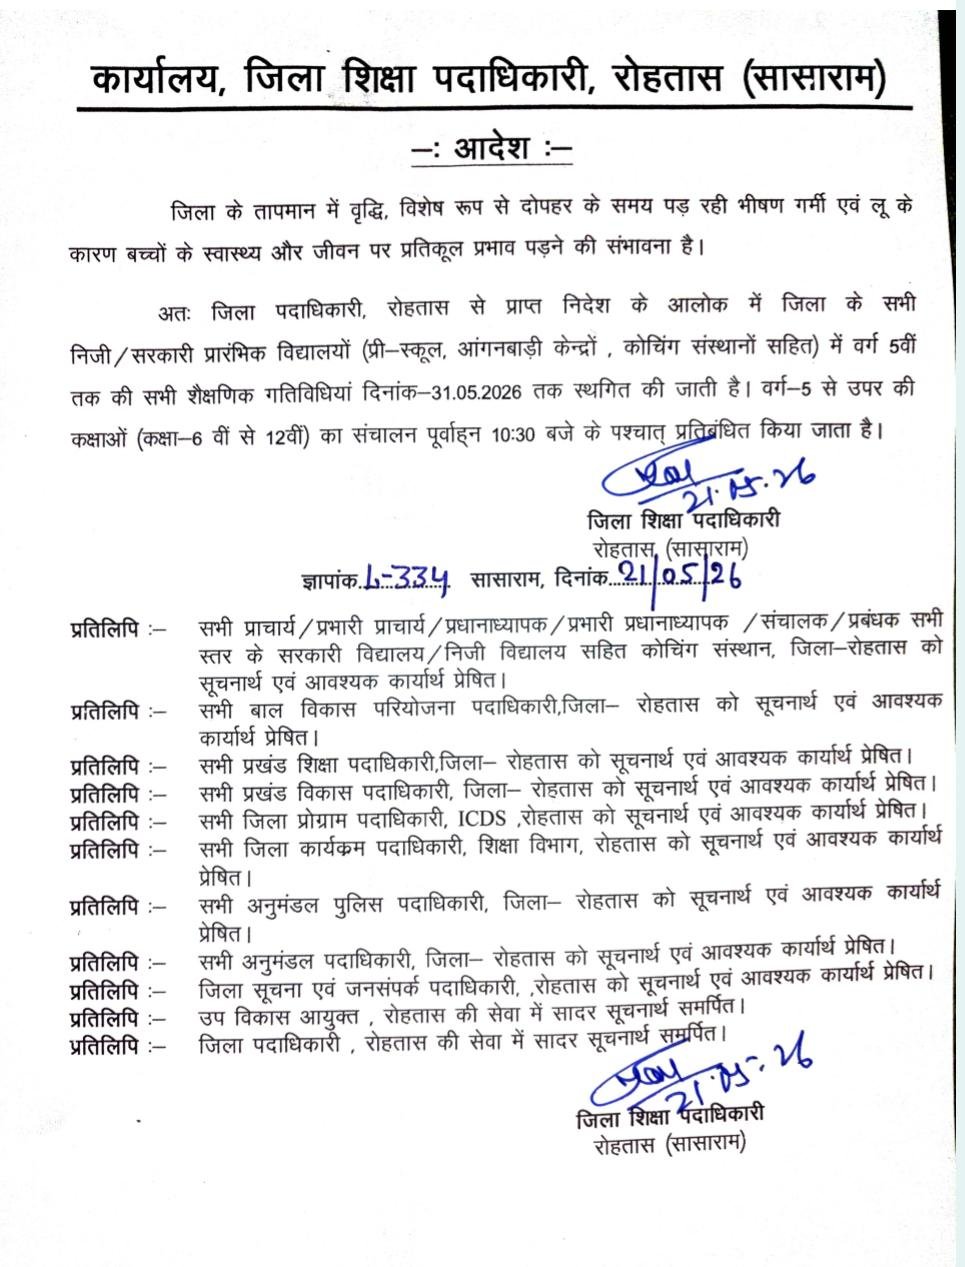 कार्यालय, जिला शिक्षा पदाधिकारी, रोहतास (सासाराम)
–: आदेश :–
जिला के तापमान में वृद्धि, विशेष रूप से दोपहर के समय पड़ रही भीषण गर्मी एवं लू के
कारण बच्चों के स्वास्थ्य और जीवन पर प्रतिकूल प्रभाव पड़ने की संभावना है।
अतः जिला पदाधिकारी, रोहतास से प्राप्त निदेश के आलोक में जिला के सभी
निजी/सरकारी प्रारंभिक विद्यालयों (प्री–स्कूल, आंगनबाड़ी केन्द्रों , कोचिंग संस्थानों सहित) में वर्ग 5वीं
तक की सभी शैक्षणिक गतिविधियां दिनांक–31.05.2026 तक स्थगित की जाती है। वर्ग–5 से उपर की
कक्षाओं (कक्षा–6 वीं से 12वीं) का संचालन पूर्वाह्न 10:30 बजे के पश्चात् प्रतिबंधित किया जाता है।
21.05.26
जिला शिक्षा पदाधिकारी
रोहतास (सासाराम)
ज्ञापांक..L-334.. सासाराम, दिनांक..21/05/26
प्रतिलिपि :– सभी प्राचार्य/प्रभारी प्राचार्य/प्रधानाध्यापक/प्रभारी प्रधानाध्यापक /संचालक/प्रबंधक सभी
स्तर के सरकारी विद्यालय/निजी विद्यालय सहित कोचिंग संस्थान, जिला–रोहतास को
सूचनार्थ एवं आवश्यक कार्यार्थ प्रेषित।
प्रतिलिपि :– सभी बाल विकास परियोजना पदाधिकारी,जिला– रोहतास को सूचनार्थ एवं आवश्यक
कार्यार्थ प्रेषित।
प्रतिलिपि :– सभी प्रखंड शिक्षा पदाधिकारी,जिला– रोहतास को सूचनार्थ एवं आवश्यक कार्यार्थ प्रेषित।
प्रतिलिपि :– सभी प्रखंड विकास पदाधिकारी, जिला– रोहतास को सूचनार्थ एवं आवश्यक कार्यार्थ प्रेषित।
प्रतिलिपि :– सभी जिला प्रोग्राम पदाधिकारी, ICDS ,रोहतास को सूचनार्थ एवं आवश्यक कार्यार्थ प्रेषित।
प्रतिलिपि :– सभी जिला कार्यक्रम पदाधिकारी, शिक्षा विभाग, रोहतास को सूचनार्थ एवं आवश्यक कार्यार्थ
प्रेषित।
प्रतिलिपि :– सभी अनुमंडल पुलिस पदाधिकारी, जिला– रोहतास को सूचनार्थ एवं आवश्यक कार्यार्थ
प्रेषित।
प्रतिलिपि :– सभी अनुमंडल पदाधिकारी, जिला– रोहतास को सूचनार्थ एवं आवश्यक कार्यार्थ प्रेषित।
प्रतिलिपि :– जिला सूचना एवं जनसंपर्क पदाधिकारी, ,रोहतास को सूचनार्थ एवं आवश्यक कार्यार्थ प्रेषित।
प्रतिलिपि :– उप विकास आयुक्त , रोहतास की सेवा में सादर सूचनार्थ समर्पित।
प्रतिलिपि :– जिला पदाधिकारी , रोहतास की सेवा में सादर सूचनार्थ समर्पित।
21.05.26
जिला शिक्षा पदाधिकारी
रोहतास (सासाराम)